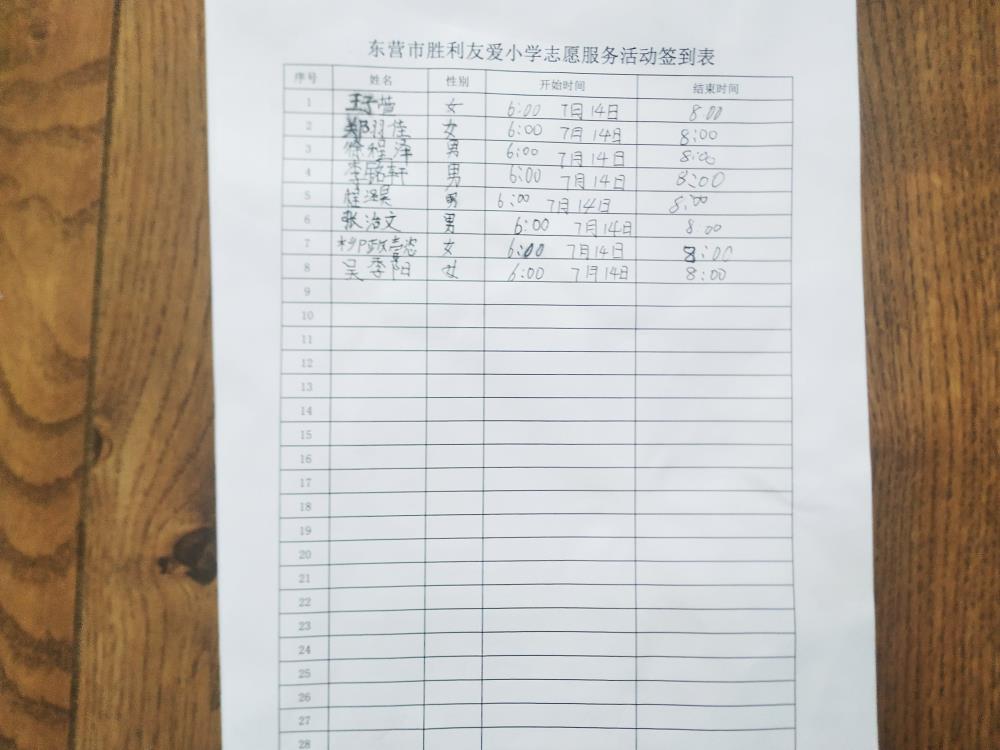 东营市胜利友爱小学志愿服务活动签到表
序号 姓名 性别 开始时间 结束时间
1 王子萱 女 6:00 7月14日 8:00
2 郑羽佳 女 6:00 7月14日 8:00
3 徐程泽 男 6:00 7月14日 8:00
4 李铭轩 男 6:00 7月14日 8:00
5 男 6:00 7月14日 8:00
6 张治文 男 6:00 7月14日 8:00
7 女 6:00 7月14日 8:00
8 吴季阳 女 6:00 7月14日 8:00
9
10
11
12
13
14
15
16
17
18
19
20
21
22
23
24
25
26
27
28